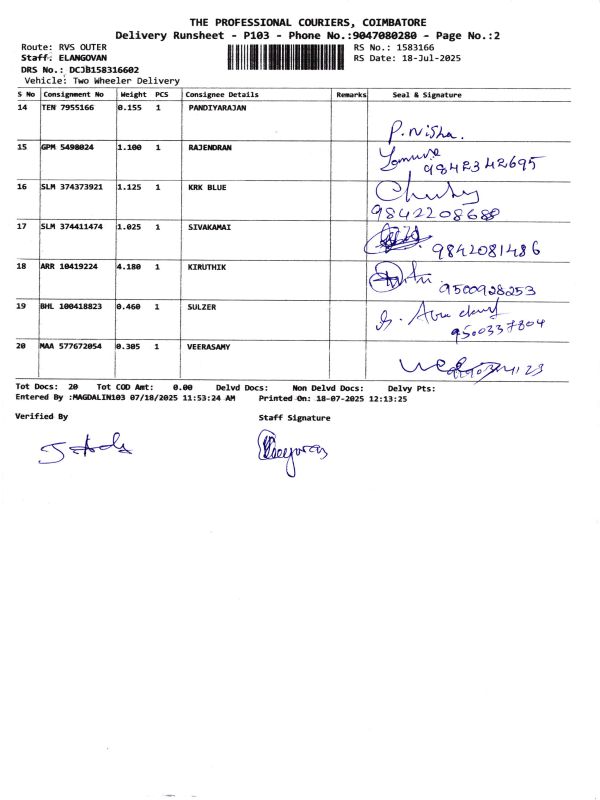 THE PROFESSIONAL COURIERS, COIMBATORE
Delivery Runsheet - P103 - Phone No.:9047080280 - Page No.:2
Route: RVS OUTER RS No.: 1583166
Staff: ELANGOVAN RS Date: 18-Jul-2025
DRS No.: DCJB158316602
Vehicle: Two Wheeler Delivery
S No Consignment No Weight PCS Consignee Details Remarks Seal & Signature
14 TEN 7955166 0.155 1 PANDIYARAJAN
P. Nisha.
15 GPM 5498024 1.100 1 RAJENDRAN
9842342695
16 SLM 374373921 1.125 1 KRK BLUE
9842208688
17 SLM 374411474 1.025 1 SIVAKAMAI
9842081486
18 ARR 10419224 4.180 1 KIRUTHIK
9500928253
19 BHL 100418823 0.460 1 SULZER
9500337804
20 MAA 577672054 0.305 1 VEERASAMY
Tot Docs: 20 Tot COD Amt: 0.00 Delvd Docs: Non Delvd Docs: Delvy Pts:
Entered By :MAGDALIN103 07/18/2025 11:53:24 AM Printed On: 18-07-2025 12:13:25
Verified By Staff Signature